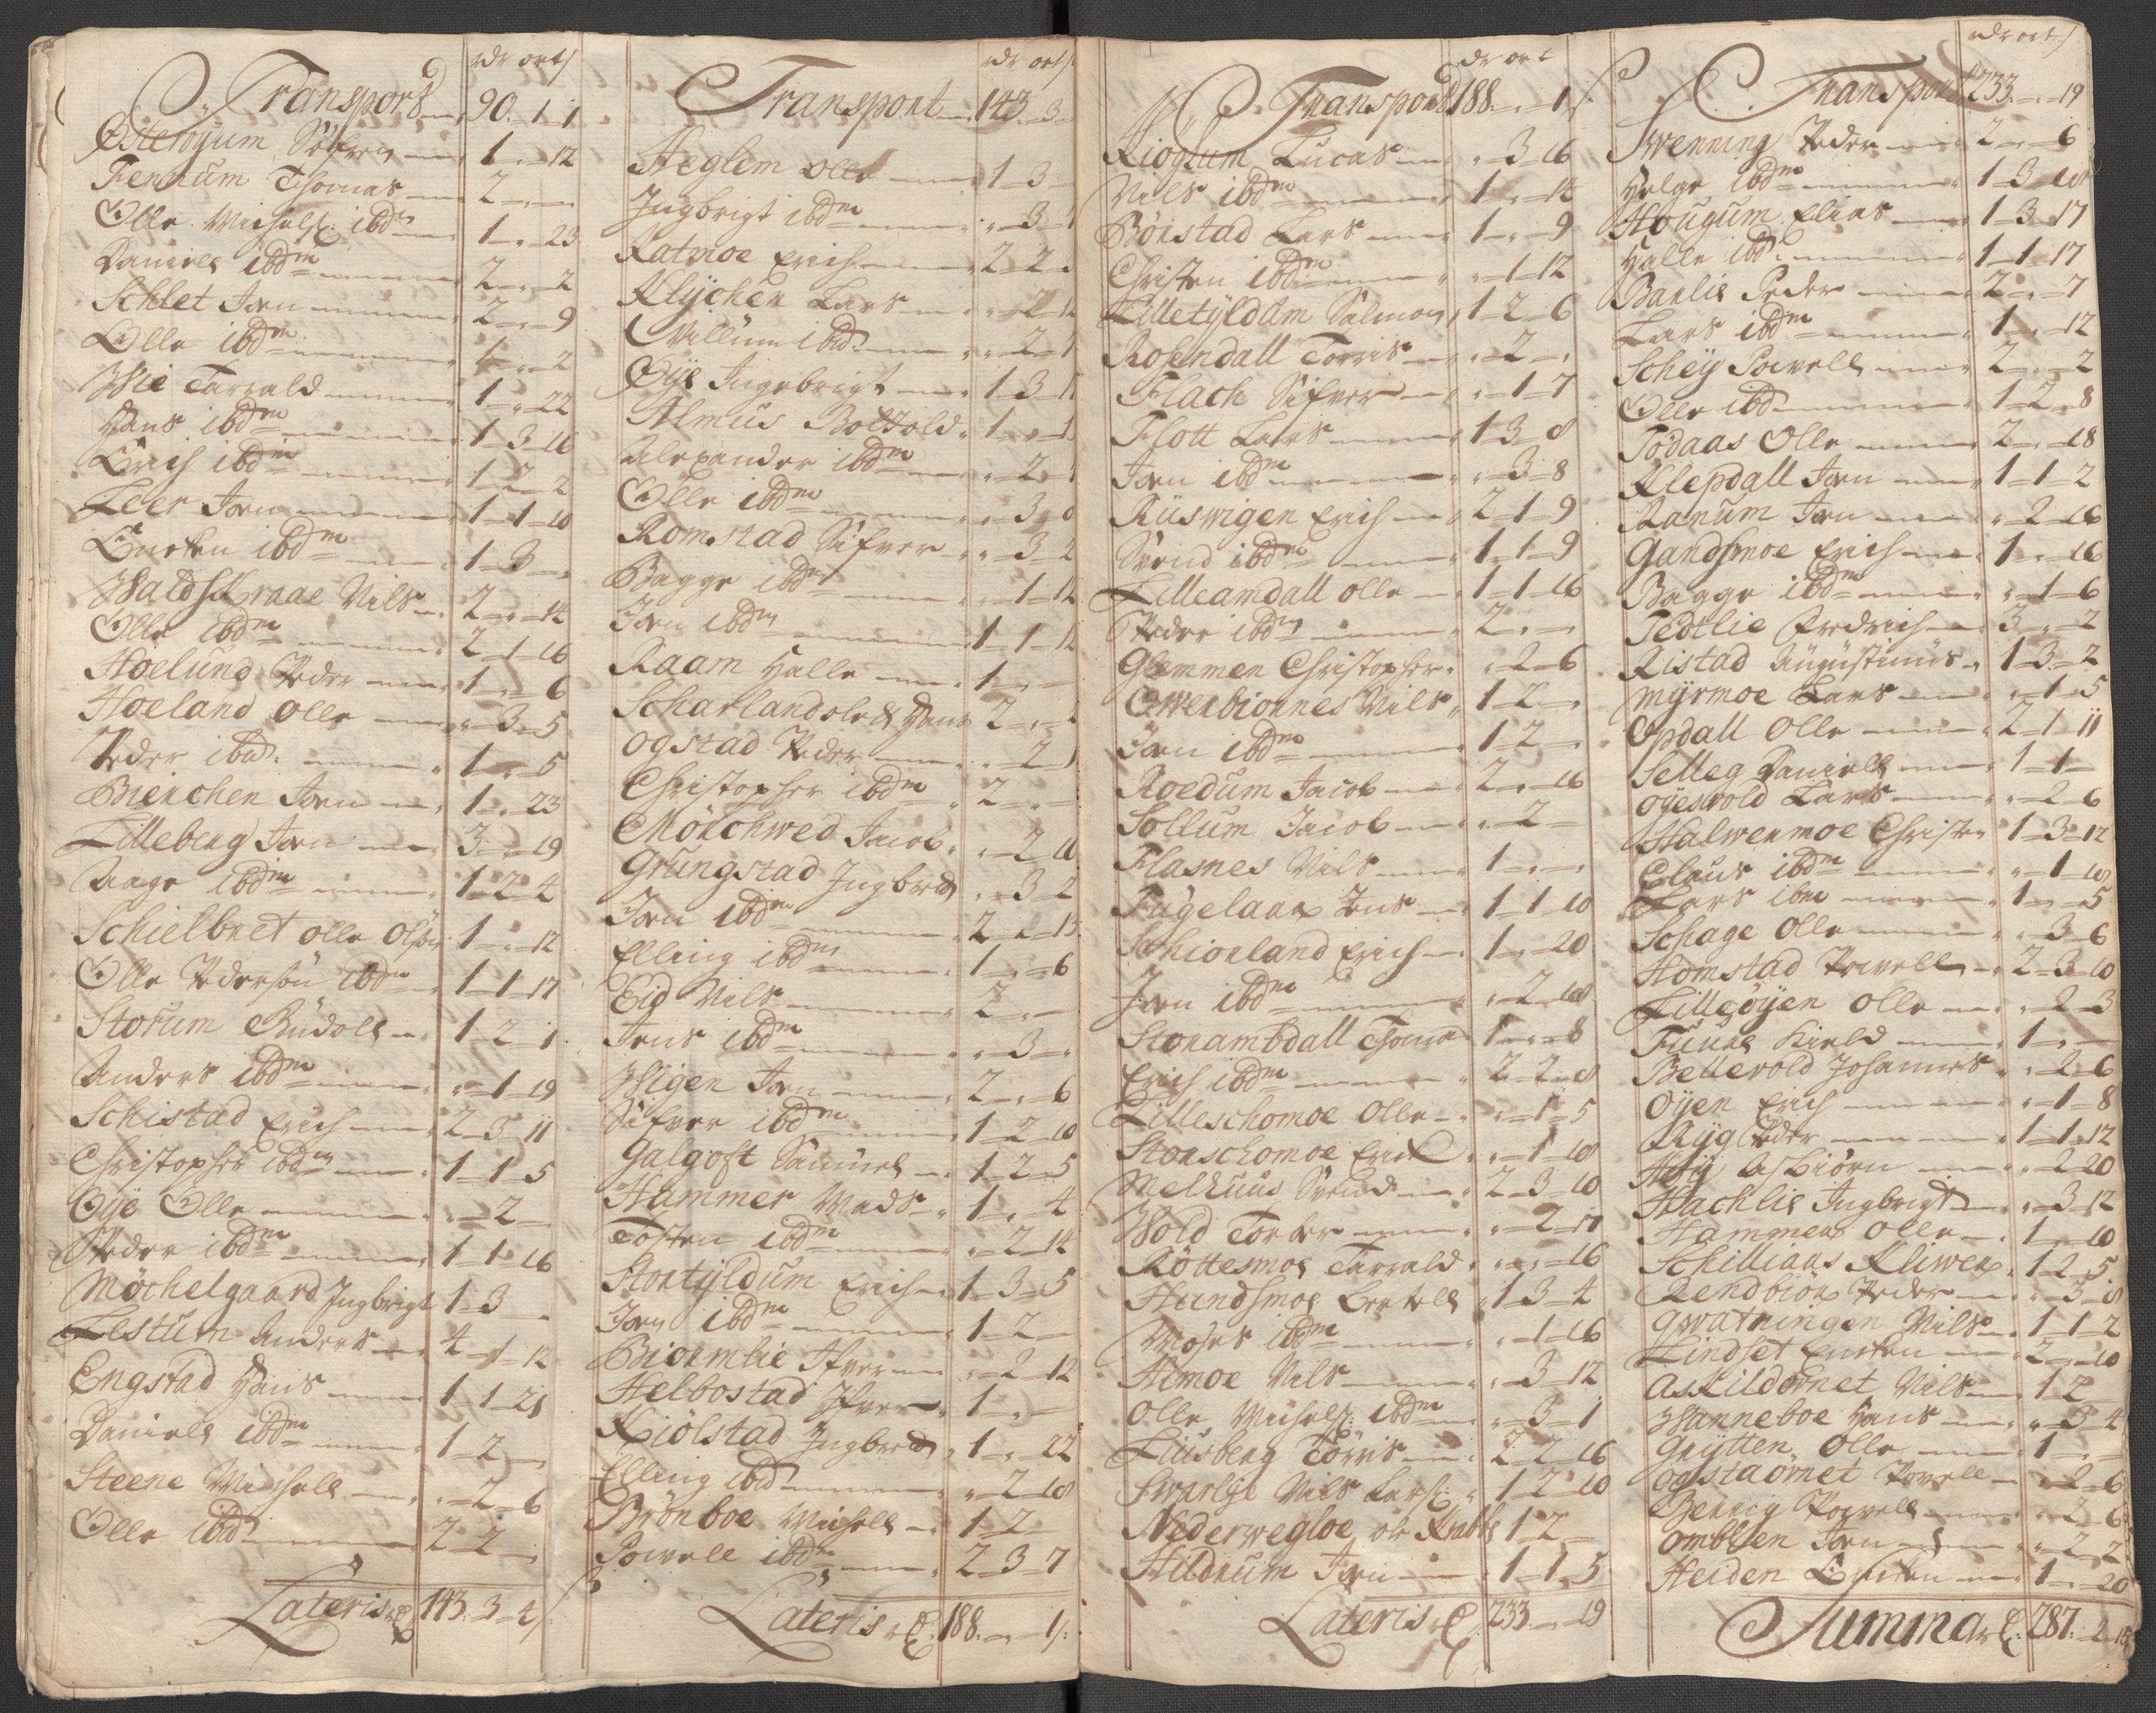 rdr ort s
Transport 90. 1 1
Østerøyum Sifver 1 " 12
Fennum Thomas 2 " "
Olle Michels: ibdm 1 " 23
Daniell ibdm 2 " 2
Schlet Jon 2 " 9
Olle ibdm 1 " 2
Wie Tarrald 1 " 22
Hans ibdm 1 3 16
Erich ibdm 1 2 2
Leer Jon 1 1 10
Encken ibdm 1 3 "
Waldschraae Nils 2 " 14
Olle ibdm 2 1 16
Hoelund Peder 1 " 6
Hoeland Olle " 3 5
Peder ibd: 1 " 5
Bierchen Jon 1 " 23
Lilleberg Jon 3 " 19
Aage ibdm 1 2 4
Schielbret Olle Olsøn 1 " 12
Olle Pedersøn ibdm 1 1 17
Storum Rudoll 1 2 1
Anders ibdm " 1 19
Schistad Erich 2 3 11
Christopher ibdm 1 1 5
Øye Olle " 2 "
Peder ibdm 1 1 16
Møchelgaard Jngbrigt 1 3 "
Lestum Anders 4 1 12
Engstad Hans 1 1 21
Daniell ibdm 1 2 "
Steene Michell " 2 6
Olle ibid 2 2 "
Lateris rC 143. 3 4 s
rdr ort s
Transport 143 3
Heglem Olle 1 3
Jngbrigt ibdm " 3
Katmoe Erich 2 2
Klychen Lars " 2 12
Villum ibd " 2
Øye Jngebrigt 1 3
Almus Bottold 1 "
Alexander ibdm " 2
Olle ibdm " 3 8
Romstad Sifver " 3 2
Bagge ibdm " 1 12
Jon ibdm 1 1 12
Raam Halle 1 "
Scharlandsle Hans 2 "
Ogstad Peder " 2
Christopher ibdm 2 "
Mørchwed Jacob " 2 10
Grungstad Jngbret " 3 2
Jon ibdm 2 " 13
Elling ibdm 1 " 6
Eid Nils 2 "
Jens ibdm " 3 "
Wigen Jon 2 " 6
Sifver ibdm 1 2 10
Galgoft Samuel 1 2 5
Hammer Mads 1 " 4
Tosten ibdm " 2 14
Stortyldum Erich 1 3 5
Jon ibdm 1 2
Biørmlie Ifver " 2 12
Helbostad Jfver 1 "
Kiølstad Jngbret 1 " 22
Elling ibd " 2 18
Brønboe Michell 1 2
Powell ibdm 2 3 7
Lateris rC. 188. " 1 s:
rdr ort
Transport 188. " 1 s.
Kiøglum Lucas " 3 16
Nils ibdm 1 " 14
Børstad Lars 1 " 9
Christen ibdm " 1 12
Lilletyldum Salmon 1 2 6
Rosendall Torris " 2 "
Flach Sifver " 1 7
Flott Lars 1 3 8
Jon ibdm " 3 8
Rüswigen Erich 2 1 9
Svend ibdm 1 1 9
Lilleamdall Olle 1 1 16
Peder ibdm 2 " "
Glemmen Christopher " 2 6
Owerbiørnes Nils 1 2 "
Jon ibdm 1 2 "
Roedum Jacob 2 " 16
Sollum Jacob " 2
Flasnes Nils 1 " "
Fugelaax Jens 1 1 10
Schiorland Erich 1 " 20
Jon ibdm " 2 18
Storambdall Thomas 1 " 8
Erich ibdm 2 2 8
Lilleschomoe Olle " 1 5
Storschomoe Erick " 1 18
Melhuus Svend 2 3 10
Wold Torfer " 2 17
Røttesmoe Tarrald " " 16
Hundsmoe Bertell 1 3 4
Moses ibdm " 1 16
Aimoe Nils " 3 12
Olle Michels: ibdm " 3 1
Lüsberg Torris 2 2 16
Swarlye Nils Lars: 1 2 10
Nederwegloe Ole Krabbe 1 2
Hildrum Jon 1 1 5
Lateris rC 233 " 19
rdr ort s
Transport 233. " 19
Swenning Peder 2 " 6
Helge ibdm 1 3 18
Hougum Elias 1 3 17
Halle ibd: 1 1 17
Barlie Peder 2 " 7
Lars ibdm 1 " 12
Schey Powell 2 " 2
Olle ibd 1 2 8
Todaas Olle 2 " 18
Klepdall Jon 1 1 2
Ranum Jon " 2 16
Gandsmoe Erich 1 " 16
Bagge ibdm " 1 6
Tedtlie Fredrich 3 " 2
Ristad Augustinus 1 3 2
Myrmoe Lars " 1 5
Opdall Olle 2 1 11
Selleg Daniell 1 1
Øyeswold Lars " 2 6
Halwermoe Christen 1 3 12
Claus ibdm " 1 18
Lars ibm 1 " 5
Schage Olle " 3 6
Homstad Powell 2 3 10
Lilleøyen Olle " 2 3
Fuure Kield 1 "
Bellerold Johannes " 2 6
Øyen Erich " 1 8
Ryg Peder 1 1 12
Høy Asbiørn " 2 20
Hachlie Jngbrigt " 3 12
Hammer Olle 1 " 10
Schilliaas Kliwer 1 2 5
Rendbiør Peder " 3 8
Gwatningen Nils 1 1 2
Lindset Encken 2 " 10
Askildørnet Nils 1 2
Wanneboe Hans " 3 4
Grytten Olle 1 "
Ogstaørnet Powell " 2 6
Berrig Powell " 2 6
Omblen Jon " 2 2
Heiden Encken 1 " 20
Summa rC. 287. 2